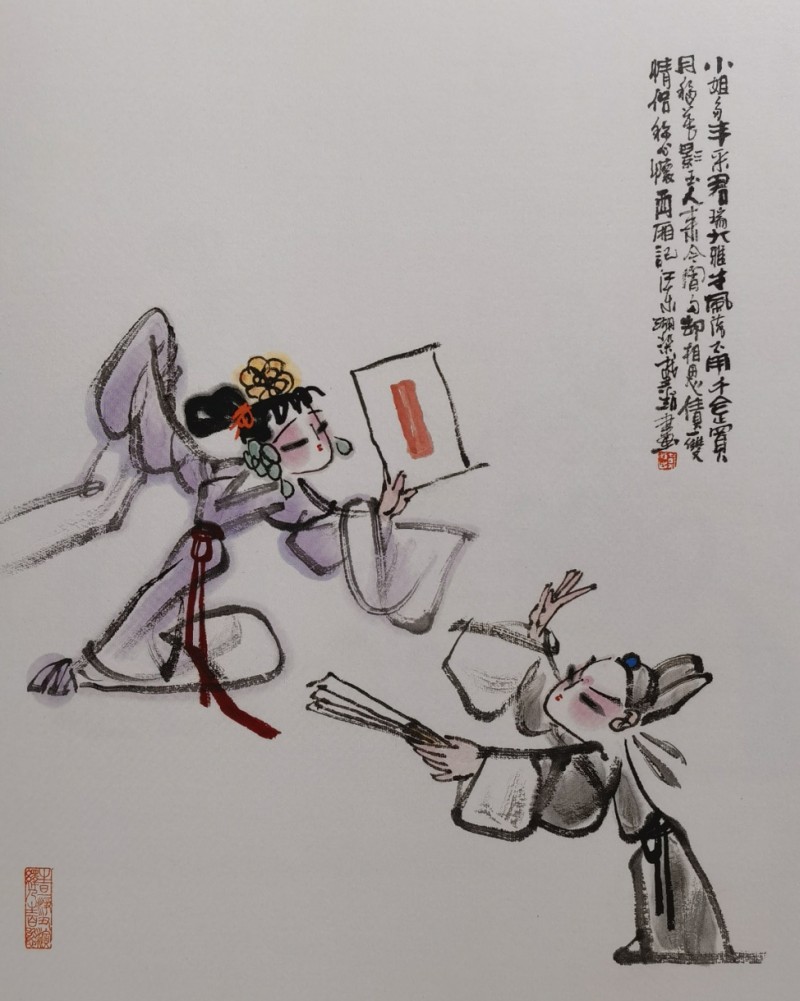 小姐多丰采君瑞大雅才風流不用千金買
月移花影玉人來今宵勾却相思債雙
情侣称心懷西厢記